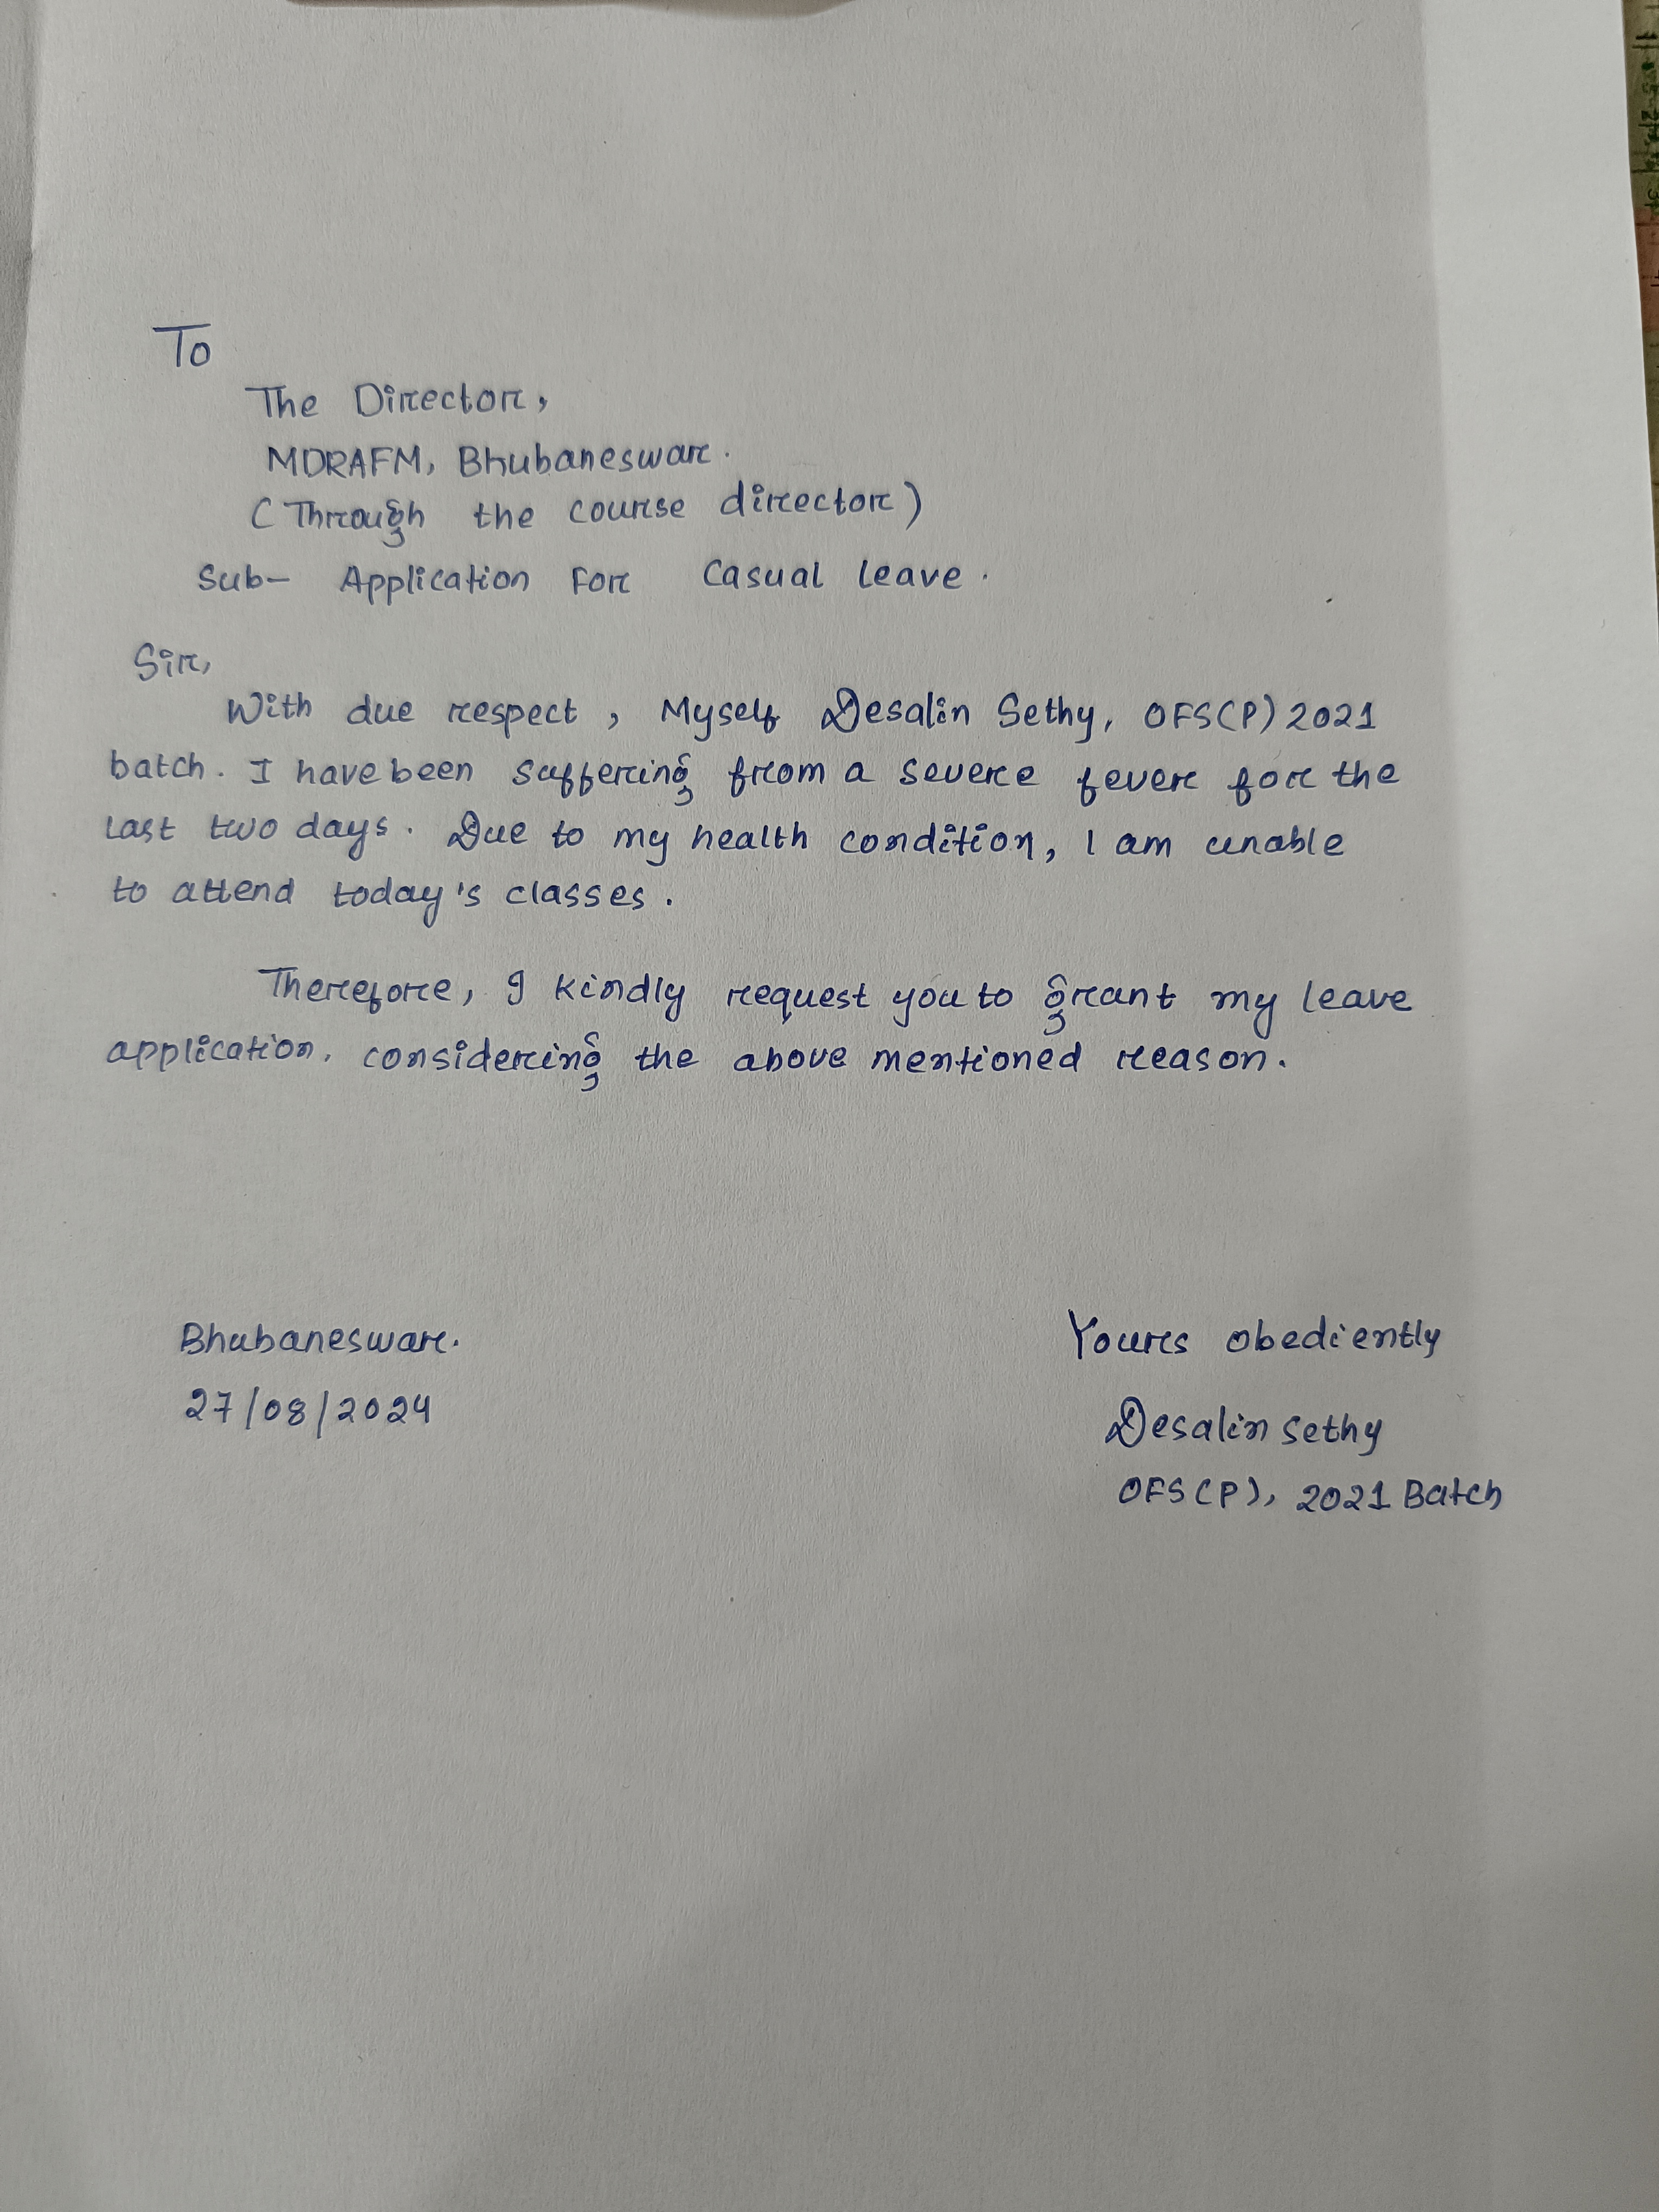 To
The Director,
MDRAFM, Bhubaneswar.
(Through the course director)
Sub- Application For Casual leave.
Sir,
With due respect, Myself Desalin Sethy, OFS(P) 2021
batch. I have been suffering from a severe fever for the
last two days. Due to my health condition, I am unable
to attend today's classes.
Therefore, I kindly request you to grant my leave
application, considering the above mentioned reason.
Bhubaneswar.
27/08/2024
Yours obediently
Desalin Sethy
OFS(P), 2021 Batch